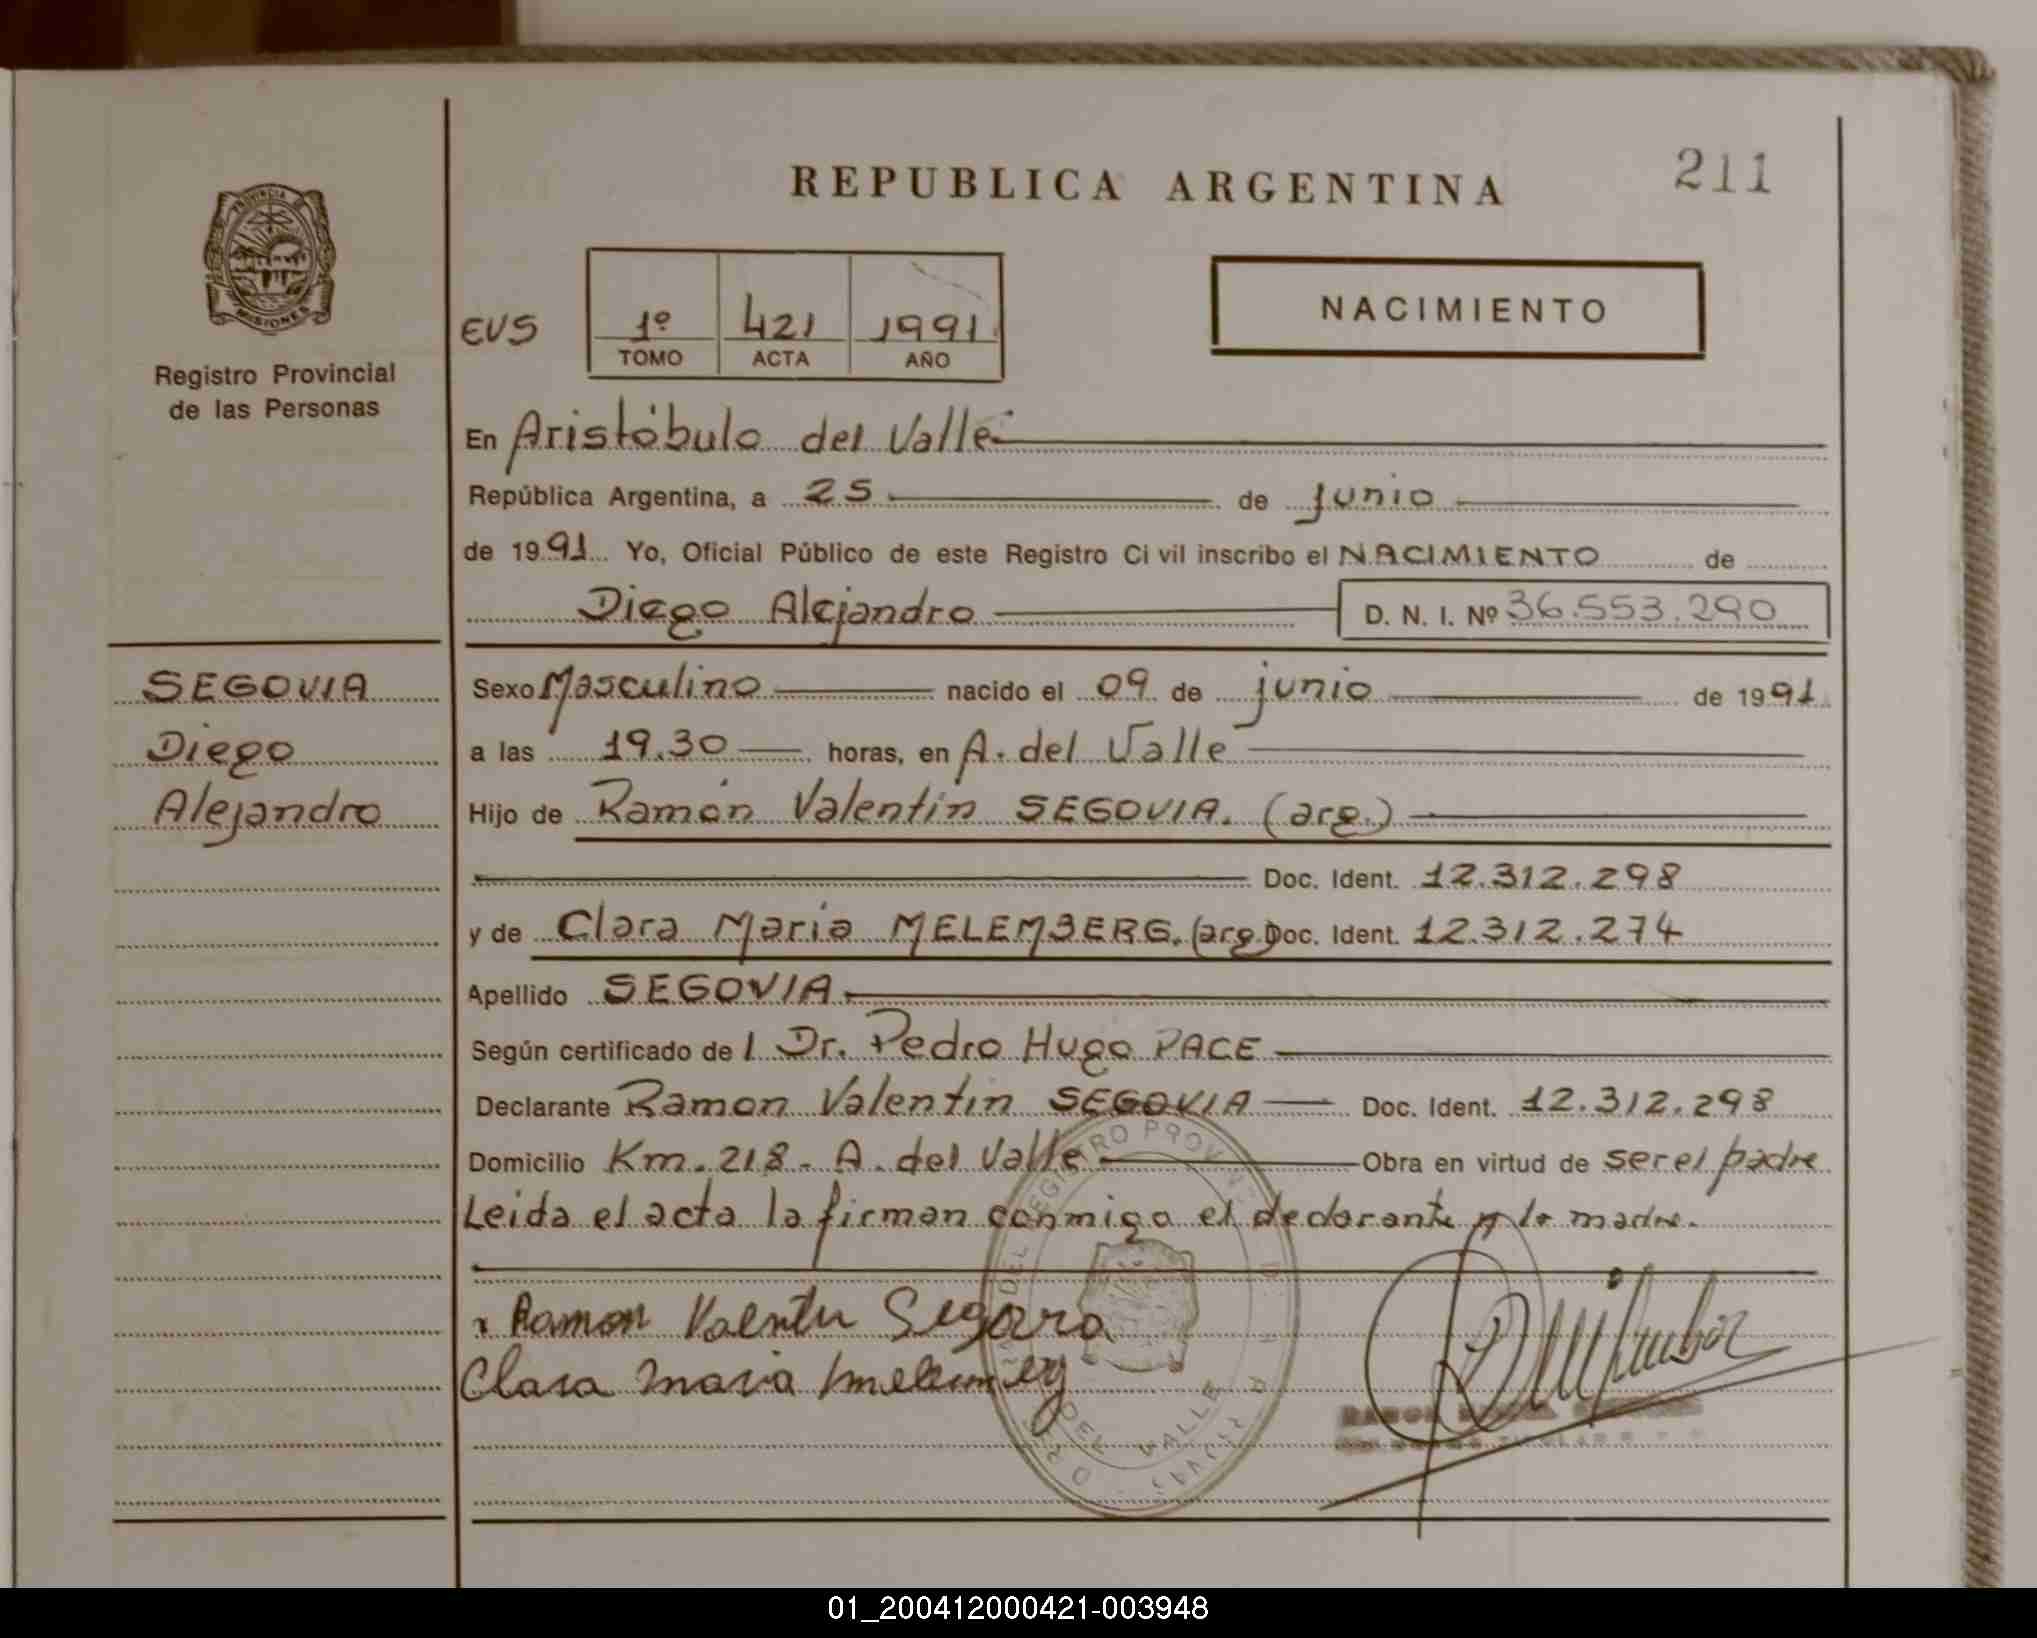 REPUBLICA ARGENTINA
211
PROVINCIA DE
MISIONES
Registro Provincial
de las Personas
EVS
1º 421 1991
TOMO ACTA AÑO
NACIMIENTO
En Aristóbulo del Valle
República Argentina, a 25 de junio
de 1991 Yo, Oficial Público de este Registro Civil inscribo el NACIMIENTO de
Diego Alejandro D. N. I. Nº 36.553.290
SEGOVIA
Diego
Alejandro
Sexo Masculino nacido el 09 de junio de 1991
a las 19.30 horas, en A. del Valle
Hijo de Ramón Valentín SEGOVIA. (arg.)
Doc. Ident. 12.312.298
y de Clara Maria MELEMBERG. (arg.) Doc. Ident. 12.312.274
Apellido SEGOVIA.
Según certificado de l Dr. Pedro Hugo PACE
Declarante Ramon Valentin SEGOVIA Doc. Ident. 12.312.298
Domicilio Km. 218. A. del Valle Obra en virtud de ser el padre
Leida el acta la firman conmigo el declarante y la madre.
Ramon
Clara maria
DEL REGISTRO PROVIN
DEL VALLE
01_200412000421-003948